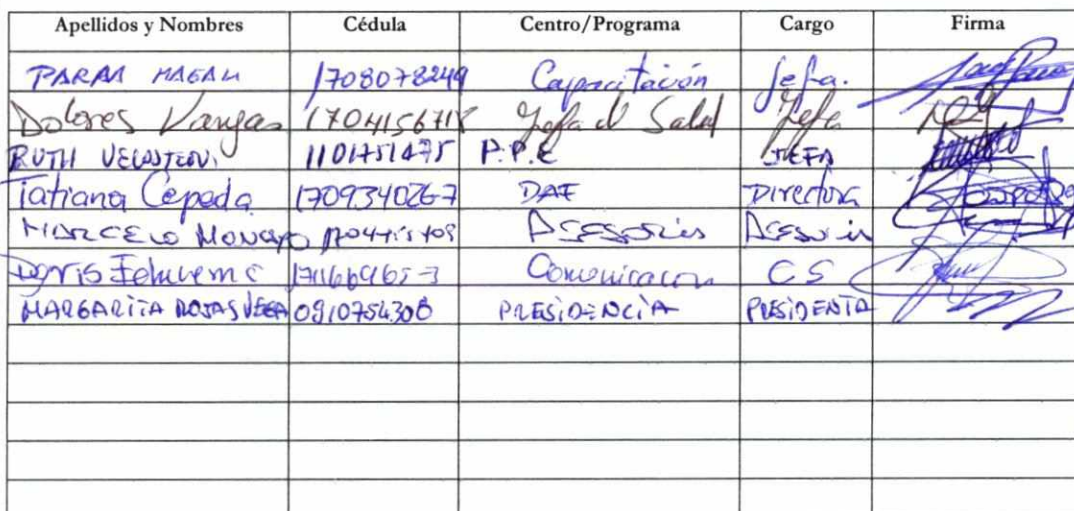 Apellidos y Nombres Cédula Centro/Programa Cargo Firma
PARRA MAGALI 1708078249 Capacitación Jefa.
Dolores Vargas 1704156718 Jefa d Salud Jefe
RUTH 1101751475 P.P.E JEFA
Tatiana Cepeda 1709340267 DAF Directora
MARCELO MONCAYO Asesoria Asesoria
Comunicacion CS
MARGARITA ROJAS VEGA 0910754308 PRESIDENCIA PRESIDENTA